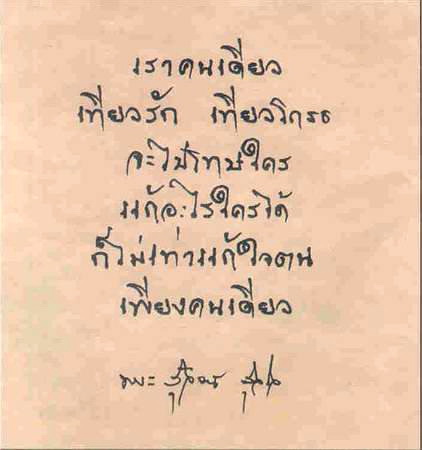 เราคนเดียว
เที่ยวรัก เที่ยวโกรธ
จะไปโทษใคร
แก้อะไรใครได้
ก็ไม่เท่าแก้ใจตน
เพียงคนเดียว